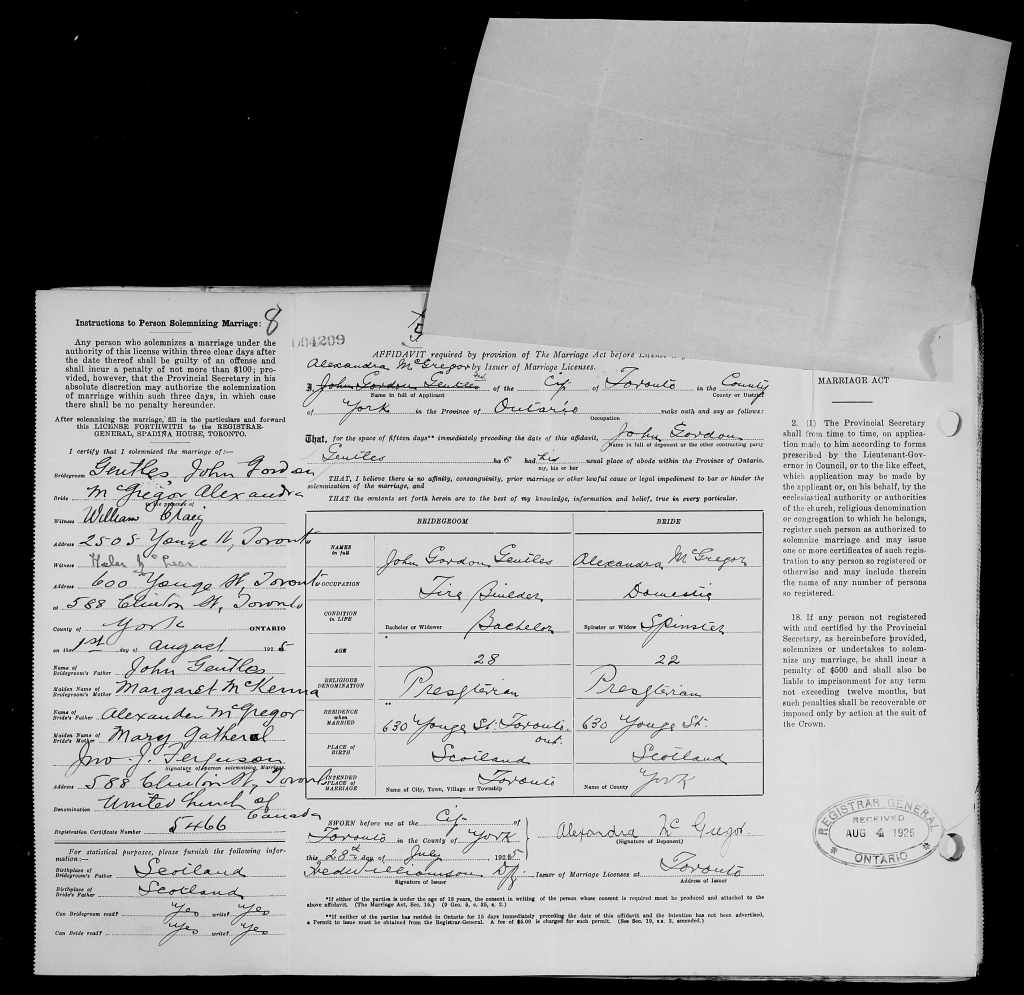 Instructions to Person Solemnizing Marriage: 8
Any person who solemnizes a marriage under the
authority of this license within three clear days after
the date thereof shall be guilty of an offense and
shall incur a penalty of not more than $100; pro-
vided, however, that the Provincial Secretary in his
absolute discretion may authorize the solemnization
of marriage within such three days, in which case
there shall be no penalty hereunder.
After solemnizing the marriage, fill in the particulars and forward
this LICENSE FORTHWITH to the REGISTRAR-
GENERAL, SPADINA HOUSE, TORONTO.
I certify that I solemnized the marriage of:—
Bridegroom Gentles John Gordon
Bride McGregor Alexandra
in the presence of
Witness William Craig
Address 2505 Yonge St, Toronto
Witness Helen
Address 600 Yonge St, Toronto
at 588 Clinton St, Toronto
County of York ONTARIO
on the 1st day of August 1925
Name of Bridegroom's Father John Gentles
Maiden Name of Bridegroom's Mother Margaret McKenna
Name of Bride's Father Alexander McGregor
Maiden Name of Bride's Mother Mary Gatheral
Jno. J. Ferguson
Signature of person solemnizing Marriage
Address 588 Clinton St, Toronto
Denomination United Church of Canada
Registration Certificate Number 5466
For statistical purposes, please furnish the following infor-
mation:—
Birthplace of Bridegroom's Father Scotland
Birthplace of Bride's Father Scotland
Can Bridegroom read? Yes write? Yes
Can Bride read? Yes write? Yes
004209
AFFIDAVIT required by provision of The Marriage Act before License
by Issuer of Marriage Licenses.
Alexandra McGregor
I, John Gordon Gentles of the City of Toronto in the County
Name in full of Applicant County or District
of York in the Province of Ontario make oath and say as follows:
Occupation
That, for the space of fifteen days** immediately preceding the date of this affidavit, John Gordon
Name in full of deponent or the other contracting party
Gentles has had his usual place of abode within the Province of Ontario.
my, his or her
THAT, I believe there is no affinity, consanguinity, prior marriage or other lawful cause or legal impediment to bar or hinder the
solemnization of the marriage, and
THAT the contents set forth herein are to the best of my knowledge, information and belief, true in every particular.
BRIDEGROOM BRIDE
NAMES in full John Gordon Gentles Alexandra McGregor
OCCUPATION Tire Builder Domestic
CONDITION in LIFE Bachelor or Widower Bachelor Spinster or Widow Spinster
AGE 28 22
RELIGIOUS DENOMINATION Presbyterian Presbyterian
RESIDENCE when MARRIED 630 Yonge St. Toronto Ont. 630 Yonge St.
PLACE OF BIRTH Scotland Scotland
INTENDED PLACE OF MARRIAGE Name of City, Town, Village or Township Toronto Name of County York
SWORN before me at the City of
Toronto in the County of York
this 28th day of July, 1925
Fred Williamson
Signature of Issuer
Alexandra McGregor
(Signature of Deponent)
Issuer of Marriage Licenses at Toronto
Address of Issuer
*If either of the parties is under the age of 18 years, the consent in writing of the person whose consent is required must be produced and attached to the
above affidavit. (The Marriage Act, Sec. 16.)
**If neither of the parties has resided in Ontario for 15 days immediately preceding the date of this affidavit and the intention has not been advertised,
a Permit to issue must be obtained from the Registrar-General. A fee of $5.00 is charged for such permit.
MARRIAGE ACT
2. (1) The Provincial Secretary
shall from time to time, on applica-
tion made to him according to forms
prescribed by the Lieutenant-Gov-
ernor in Council, or to the like effect,
which application may be made by
the applicant or, on his behalf, by the
ecclesiastical authority or authorities
of the church, religious denomination
or congregation to which he belongs,
register such person as authorized to
solemnize marriage and may issue
one or more certificates of such regis-
tration to any person so registered or
otherwise and may include therein
the name of any number of persons
so registered.
18. If any person not registered
with and certified by the Provincial
Secretary, as hereinbefore provided,
solemnizes or undertakes to solem-
nize any marriage, he shall incur a
penalty of $500 and shall also be
liable to imprisonment for any term
not exceeding twelve months, but
such penalties shall be recoverable or
imposed only by action at the suit of
the Crown.
REGISTRAR GENERAL
RECEIVED
AUG 4 1925
ONTARIO